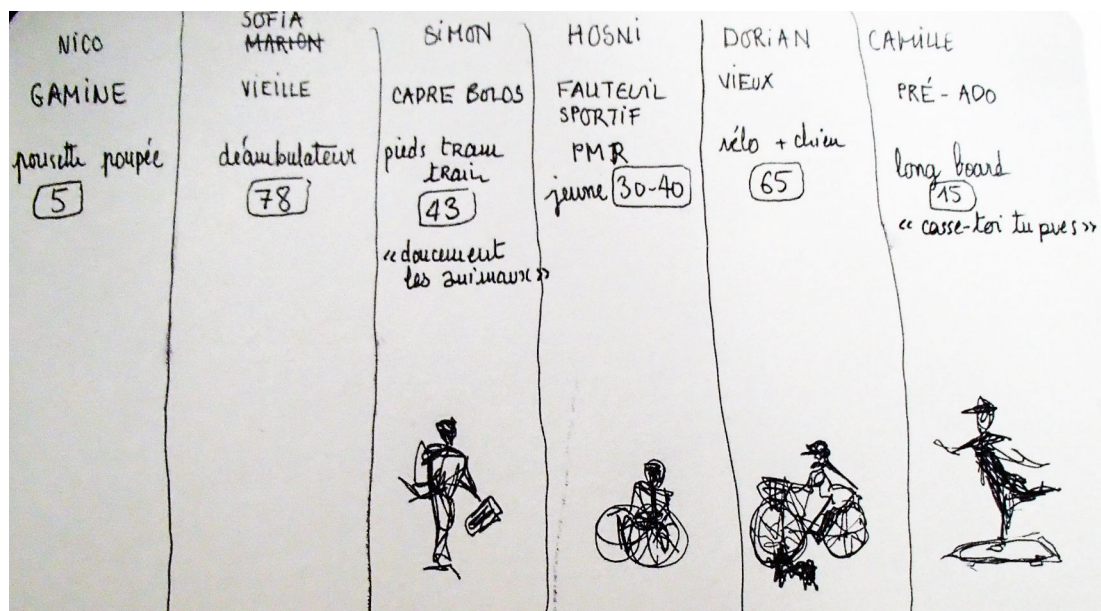 NICO
GAMINE
pousette poupée
5
SOFIA
MARION
VIEILLE
déambulateur
78
SIMON
CADRE BOLOS
pieds tram
train
43
« doucement
les animaux »
HOSNI
FAUTEUIL
SPORTIF
PMR
jeune 30-40
DORIAN
VIEUX
vélo + chien
65
CAMILLE
PRÉ-ADO
long board
15
« casse-toi tu pues »